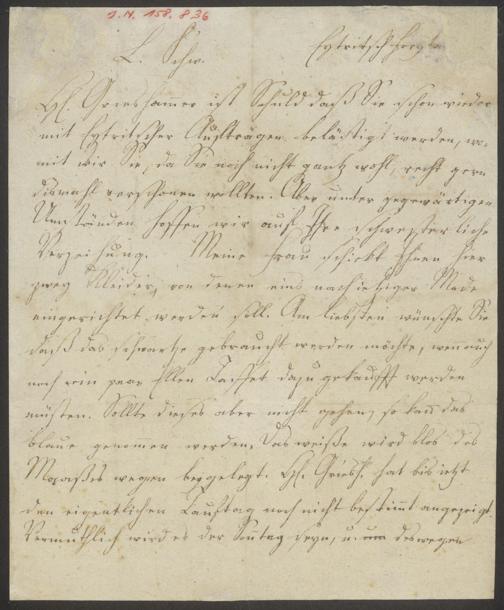 I. N. 158.836
L. Schw.
Eytritsch
H. Grieshamer ist Schuld daß Sie schon wieder
mit Eytritscher Aufträgen belästigt werden, wo-
mit wir Sie, da Sie noch nicht gantz wohl, recht gern
diesmahl verschonen wollten. Aber unter gegenwärtigen
Umständen hoffen wir auf Ihre schwesterliche
Verzeihung. Meine Frau schickt Ihnen hier
zwey Kleider, von denen eins nach ietziger Mode
eingerichtet werden soll. Am liebsten wünschte Sie
daß das schwartze gebraucht werden möchte, wenn auch
noch ein paar Ellen Taffet dazu gekaufft werden
müsten. Sollte dieses aber nicht gehen, so kann das
blaue genomen werden. Das weiße wird blos des
Maaßes wegen beygelegt. H. Griesh. hat bis ietzt
den eigentlichen Tauftag noch nicht bestimt angezeigt
Vermuthlich wird es der Sontag seyn, u. deswegen